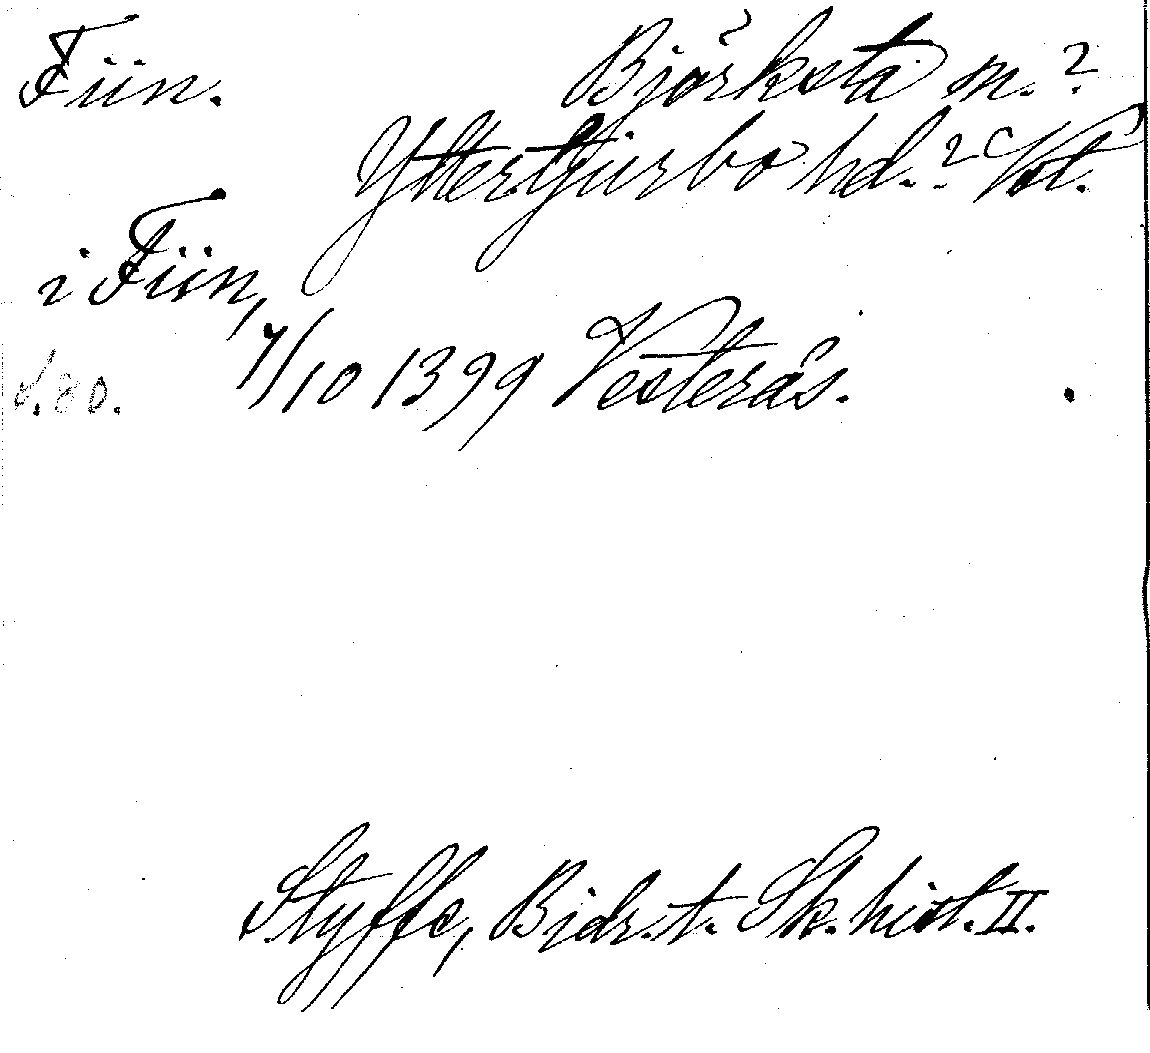 Fiin. Björksta sn.?
Yttertjurbo hd.? Vst.
i Fiin,
s. 80. 7/10 1399 Vesterås.
Styffe, Bidr. t. Sk. hist. II.